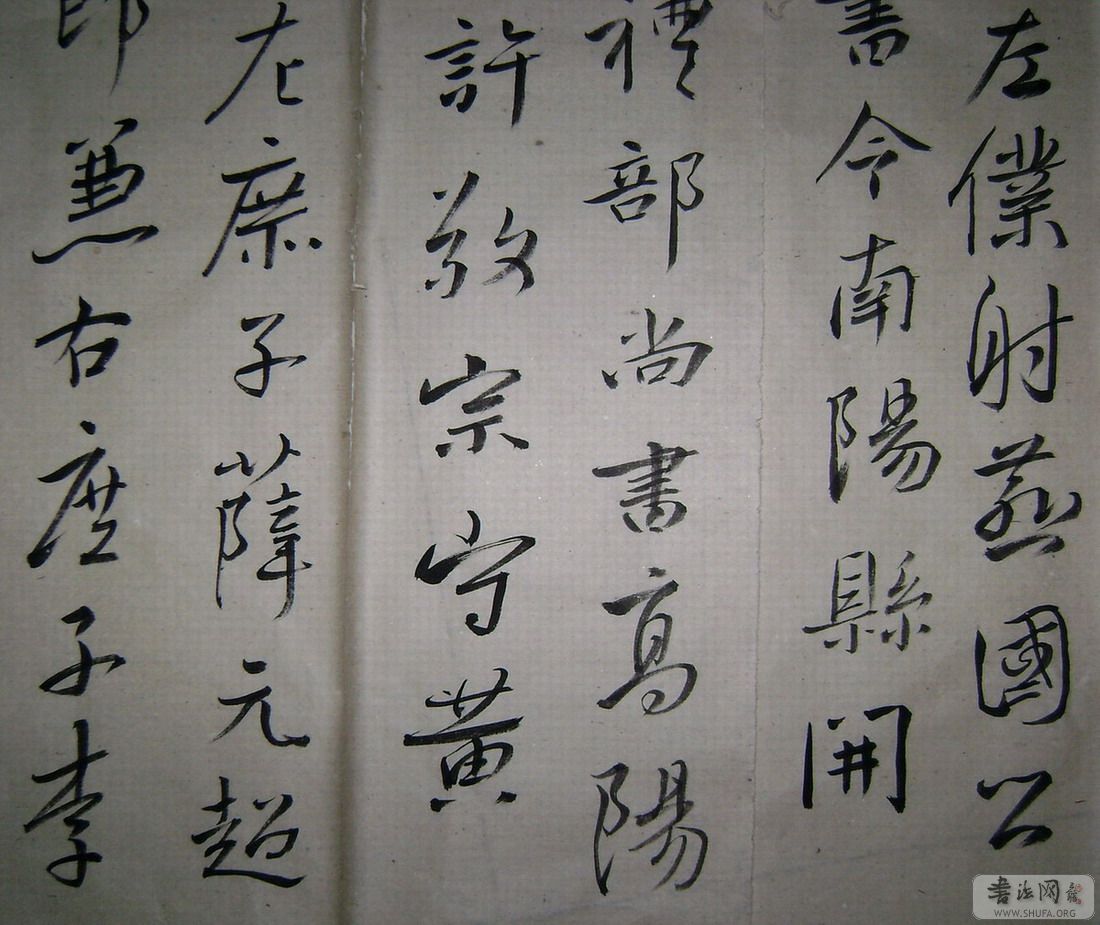 左僕射燕國公
書令南陽縣開
禮部尚書高陽
許敬宗守黄
左庶子薛元超
郎兼右庶子李
書法网
WWW.SHUFA.ORG